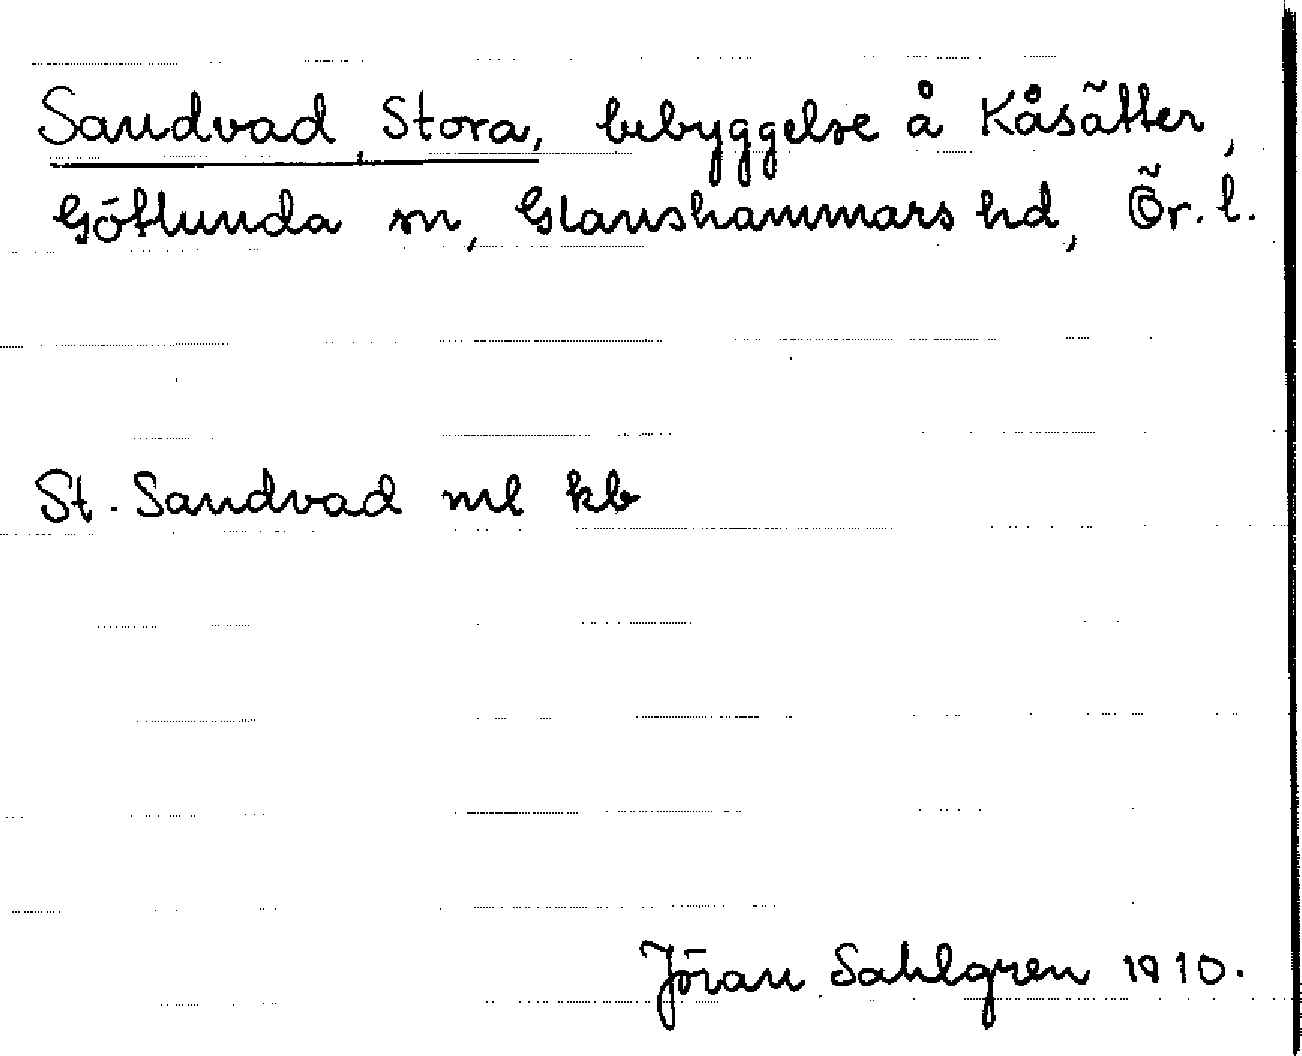 Sandvad, Stora, bebyggelse å Kåsätter,
Götlunda sn, Glanshammars hd, Ör. l.
St. Sandvad ml kb
Jöran Sahlgren 1910.